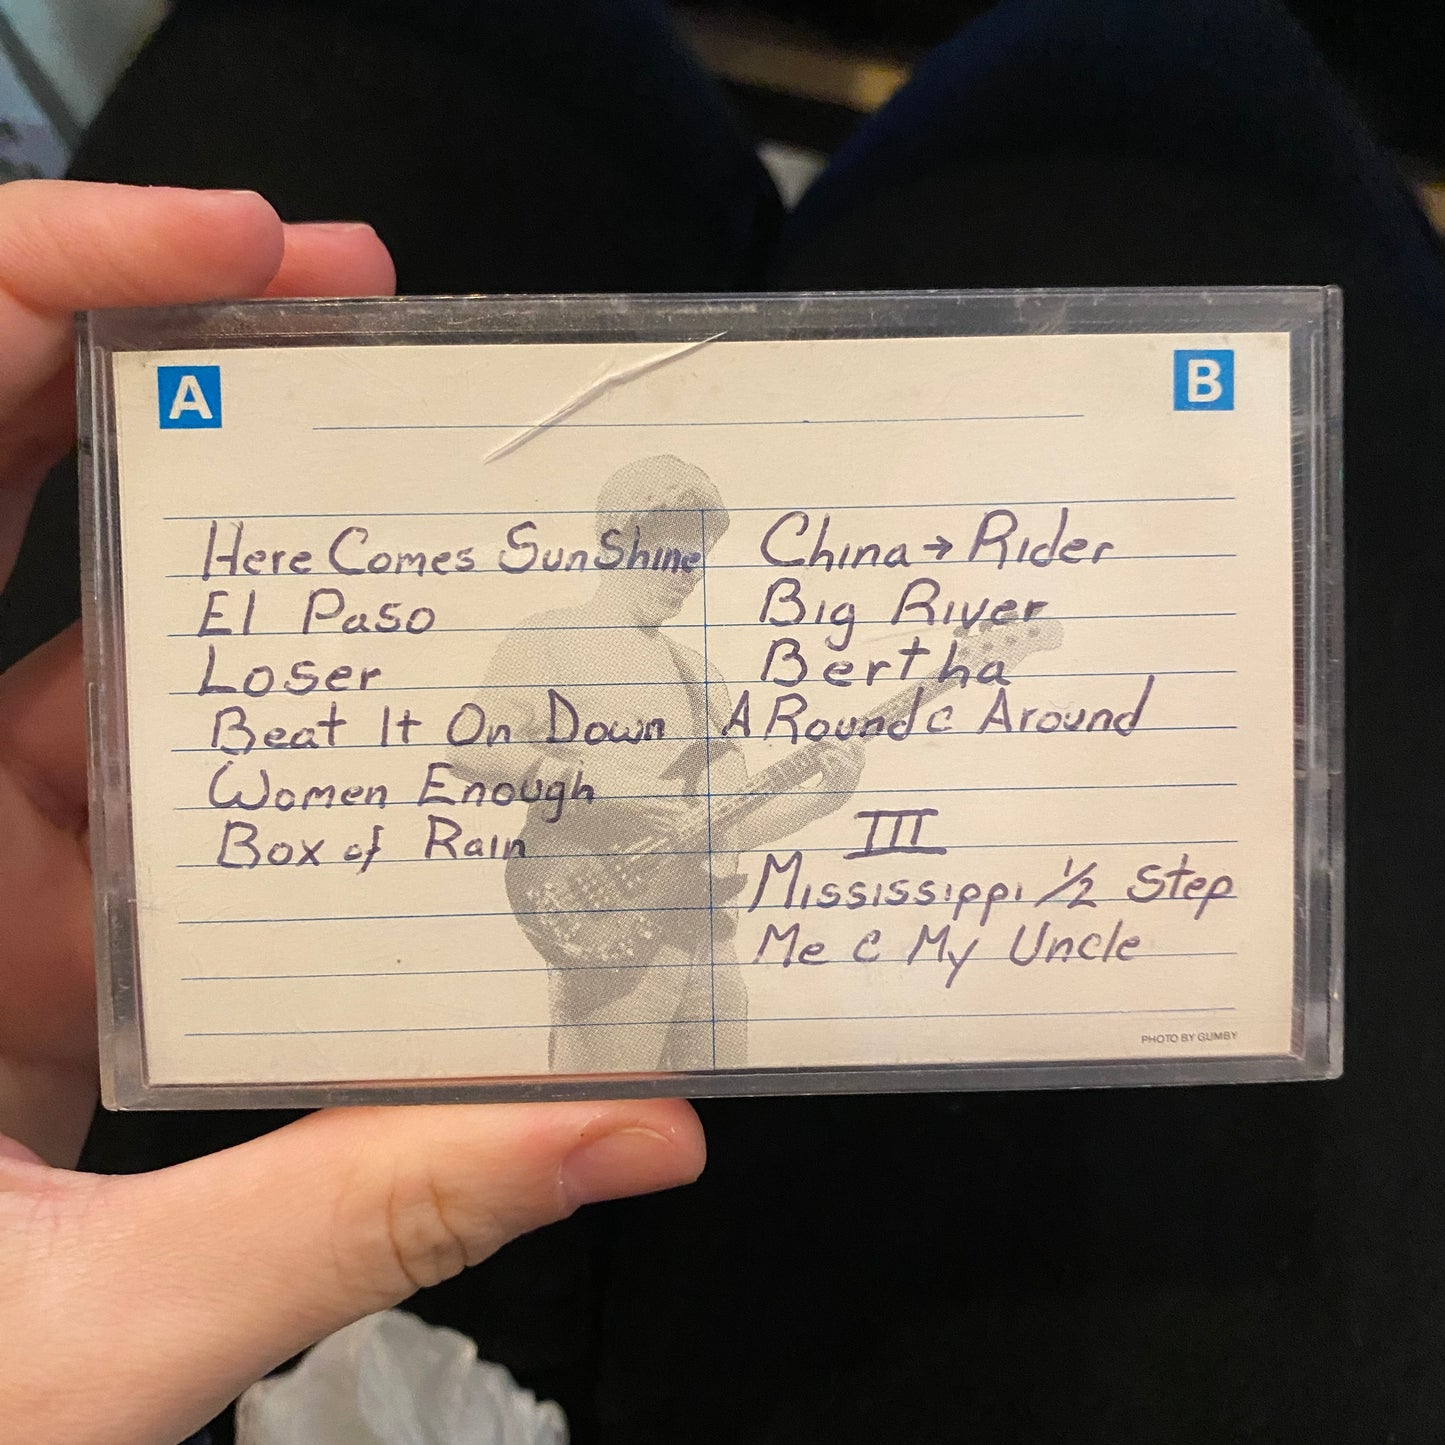 A
B
Here Comes SunShine
El Paso
Loser
Beat It On Down
Women Enough
Box of Rain
China → Rider
Big River
Bertha
ARound c Around
III
Mississippi 1/2 Step
Me c My Uncle
PHOTO BY GUMBY